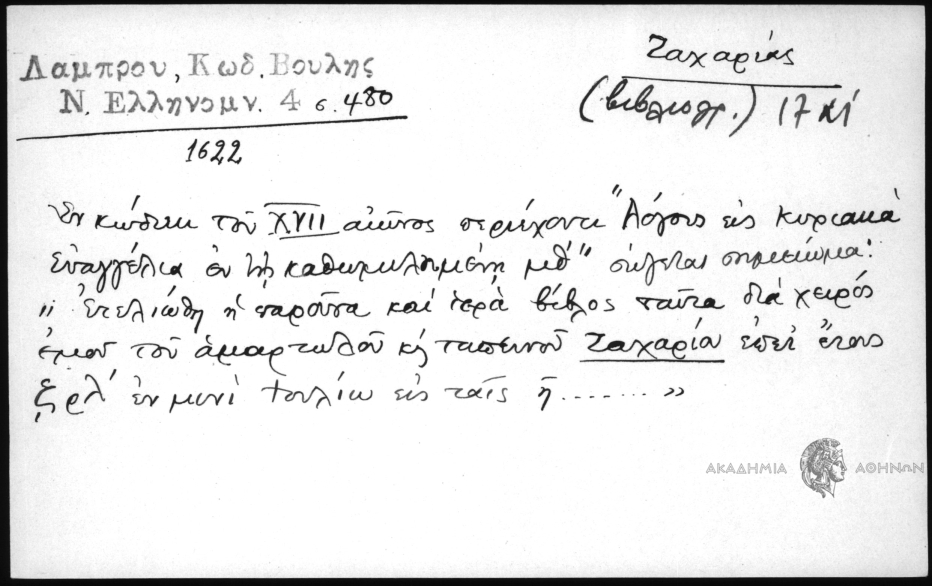 Λαμπρου, Κωδ. Βουλης
Ν. Ελληνομν. 4 σ. 480
1622
Ζαχαρίας
(βιβλιογρ.) 17 αἰ
Ἐν κώδικι τοῦ XVII αἰῶνος περιέχοντι "Λόγους εἰς Κυριακὰ
Εὐαγγέλια ἐν τῇ καθωμιλημένῃ μθ´" σώζεται σημείωμα:
" Ἐτελιώθη ἡ παροῦσα καὶ ἱερὰ βίβλος ταῦτα διὰ χειρός
ἐμοῦ τοῦ ἁμαρτωλοῦ κ ταπεινοῦ Ζαχαρία ἐπεὶ ἔτους
ζρλ´ ἐν μυνὶ Ἰουλίω εἰς ταῖς ῆ ....... »
ΑΚΑΔΗΜΙΑ ΑΘΗΝΩΝ